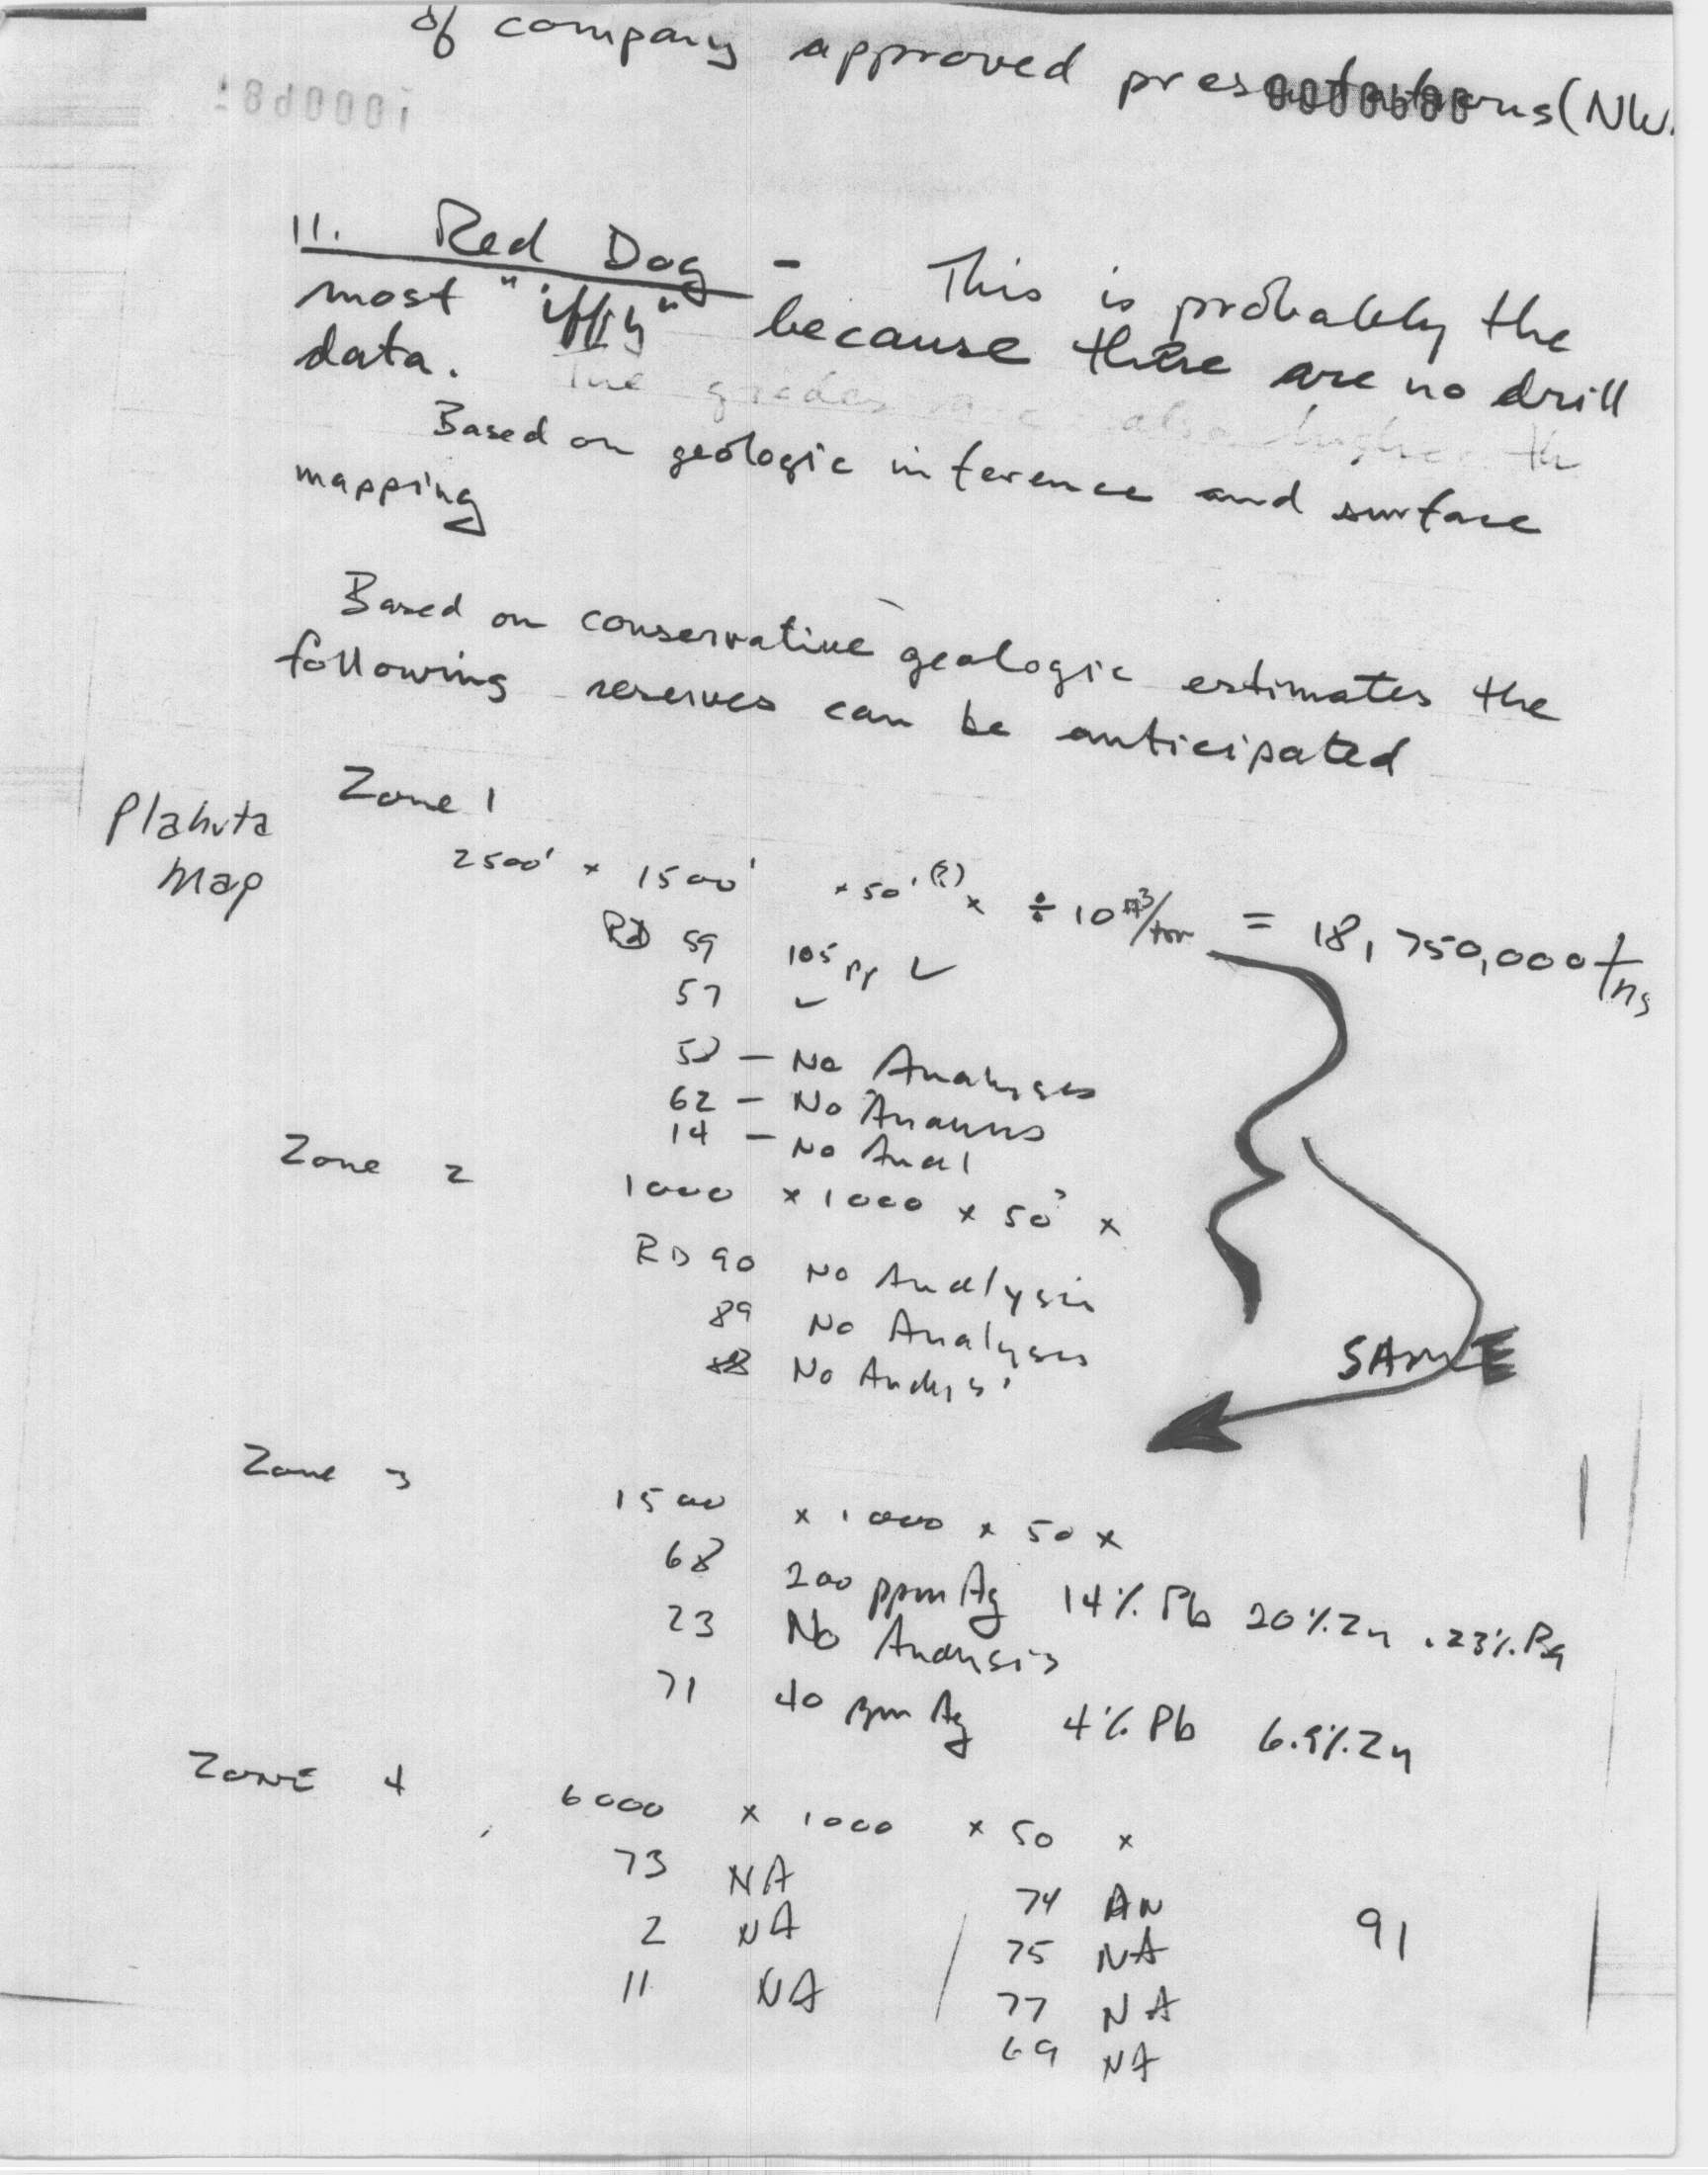 of company approved presentations (NW.
0000680
11. Red Dog - This is probably the
most "iffy" because there are no drill
data. The grades are also higher th
Based on geologic inference and surface
mapping
Based on conservative geologic estimates the
following reserves can be anticipated
Zone 1
Plahuta
Map
2500' x 1500' x 50' (?) x ÷ 10 ft3/ton = 18,750,000 tns
RD 59 105 pp ✓
57 ✓
58 - No Analyses
62 - No Analysis
14 - No Anal
Zone 2
1000 x 1000 x 50' x
RD 90 No Analysis
89 No Analyses
88 No Analysi
SAME
Zone 3
1500 x 1000 x 50 x
68 200 ppm Ag 14% Pb 20% Zn .23% Ba
23 No Analysis
71 40 ppm Ag 4% Pb 6.9% Zn
ZONE 4
6000 x 1000 x 50 x
73 NA
74 AN
2 NA
75 NA
11 NA
77 NA
69 NA
91